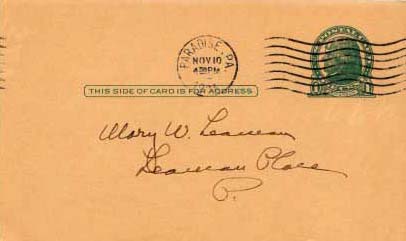 PARADISE, PA.
NOV 10
POSTAL
THIS SIDE OF CARD IS FOR ADDRESS
Mary W. Leaman
Leaman Place
P.